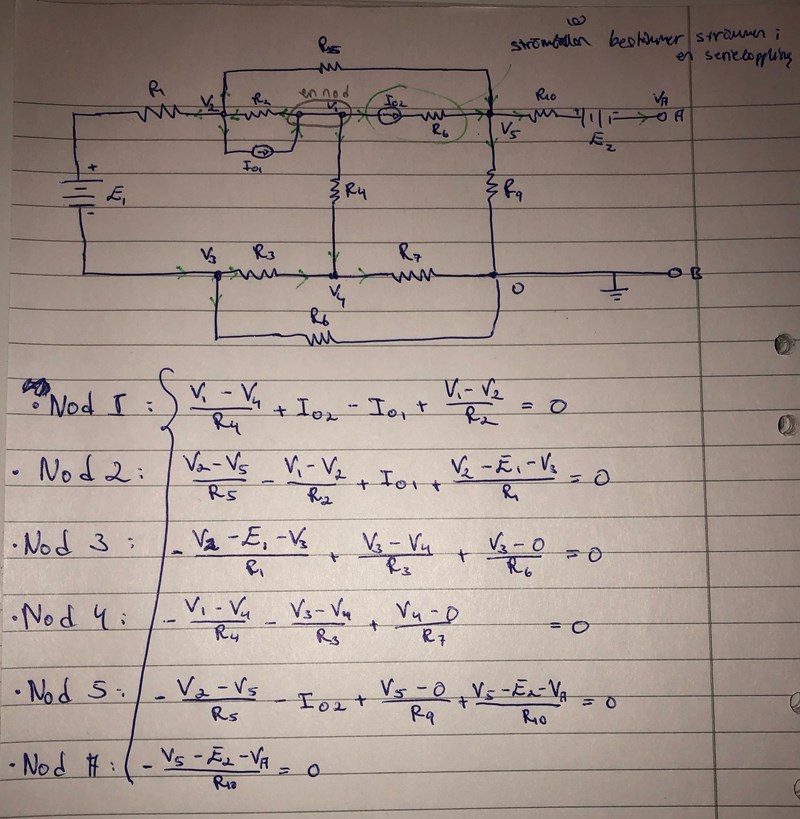 strömkällan bestämmer strömmen i
en seriekoppling
R5
R1
V2
R2
en nod
V1
I02
R6
V5
R10
E2
VA
A
I01
+
E1
-
R4
R9
V3
R3
V4
R7
0
B
R6
Nod I : V1 - V4 / R4 + I02 - I01 + V1 - V2 / R2 = 0
• Nod 2 : V2 - V5 / R5 - V1 - V2 / R2 + I01 + V2 - E1 - V3 / R1 = 0
• Nod 3 : - V2 - E1 - V3 / R1 + V3 - V4 / R3 + V3 - 0 / R6 = 0
• Nod 4 : - V1 - V4 / R4 - V3 - V4 / R3 + V4 - 0 / R7 = 0
• Nod 5 : - V2 - V5 / R5 - I02 + V5 - 0 / R9 + V5 - E2 - VA / R10 = 0
• Nod A : - V5 - E2 - VA / R10 = 0